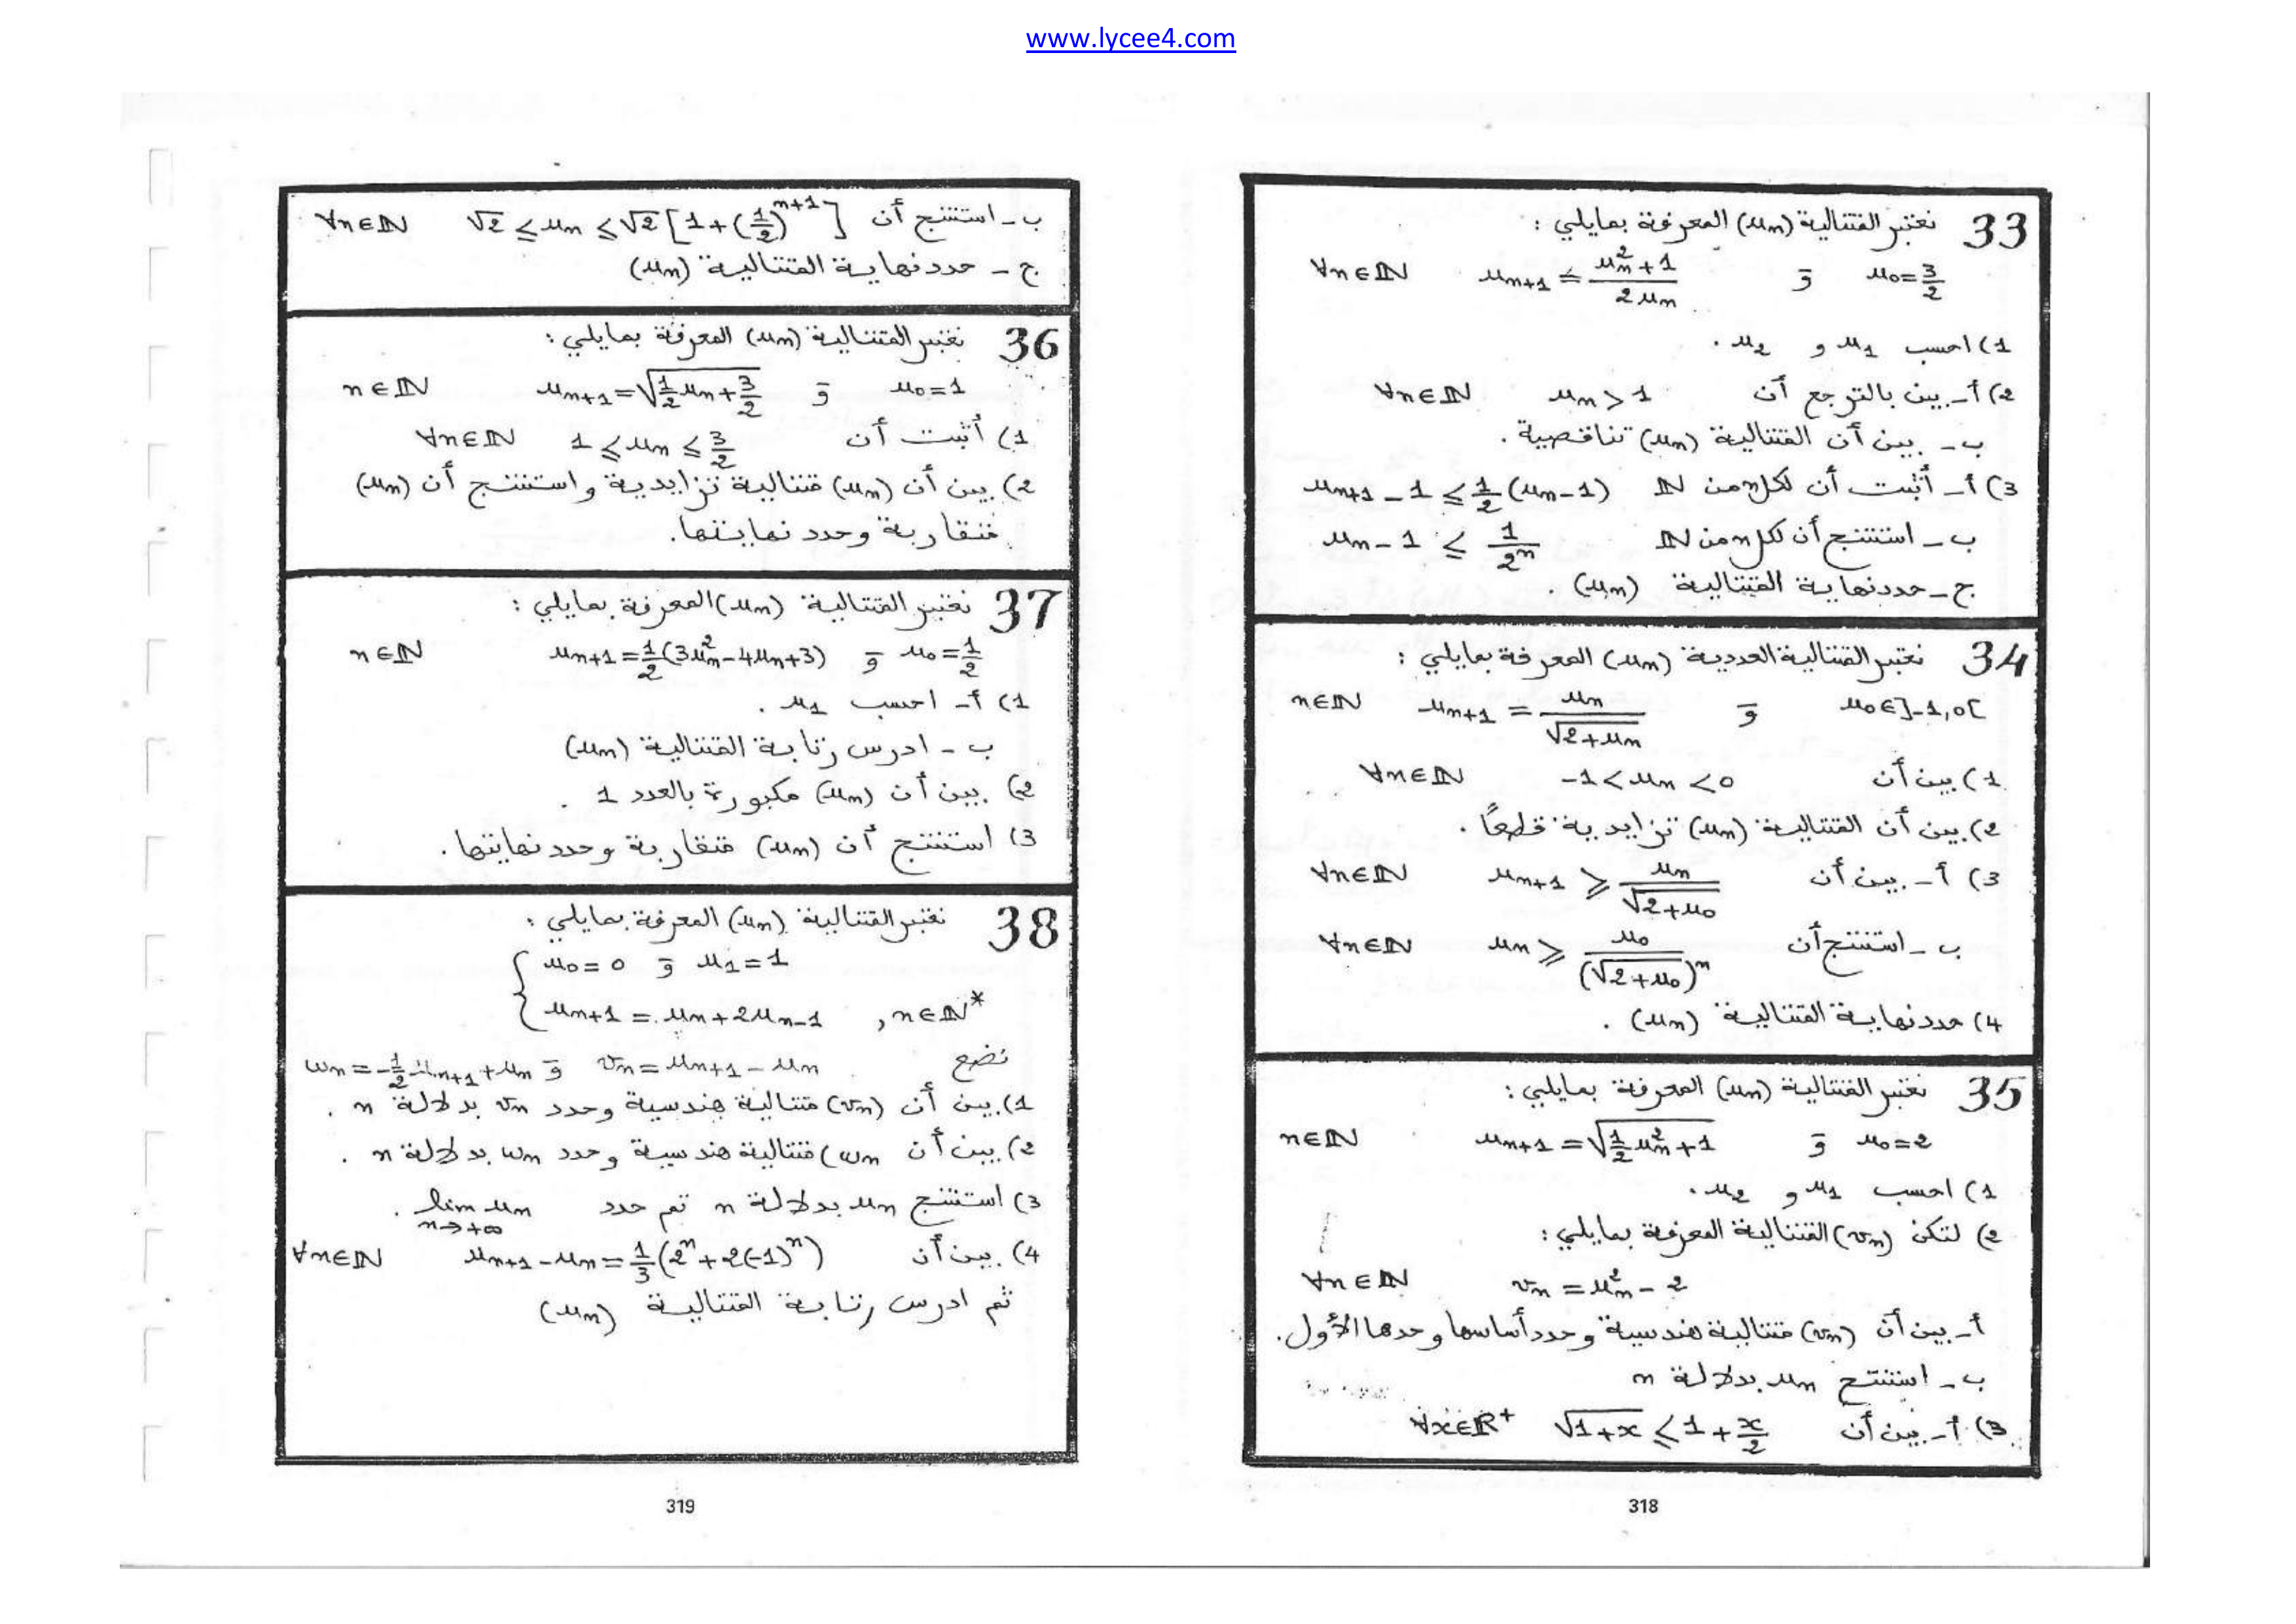 www.lycee4.com
33 نعتبر المتتالية (uₙ) المعرفة بمايلي :
u₀=3/2 و uₙ₊₁ = (uₙ²+1)/(2uₙ) ∀n∈ℕ
1) احسب u₁ و u₂ .
2) أ- بين بالترجع أن uₙ > 1 ∀n∈ℕ
ب- بين أن المتتالية (uₙ) تناقصية .
3) أ- أثبت أن لكل n من ℕ uₙ₊₁ - 1 ≤ 1/2 (uₙ - 1)
ب- استنتج أن لكل n من ℕ uₙ - 1 ≤ 1/2ⁿ
ج- حدد نهاية المتتالية (uₙ) .
34 نعتبر المتتالية العددية (uₙ) المعرفة بمايلي :
u₀∈]-1,0[ و uₙ₊₁ = uₙ/√(2+uₙ) n∈ℕ
1) بين أن -1 < uₙ < 0 ∀n∈ℕ
2) بين أن المتتالية (uₙ) تزايدية قطعاً .
3) أ- بين أن uₙ₊₁ ≥ uₙ/√(2+u₀) ∀n∈ℕ
ب- استنتج أن uₙ ≥ u₀/(√(2+u₀))ⁿ ∀n∈ℕ
4) حدد نهاية المتتالية (uₙ) .
35 نعتبر المتتالية (uₙ) المعرفة بمايلي :
u₀=2 و uₙ₊₁ = √(1/2 uₙ²+1) n∈ℕ
1) احسب u₁ و u₂ .
2) لتكن (vₙ) المتتالية المعرفة بمايلي :
vₙ = uₙ² - 2 ∀n∈ℕ
أ- بين أن (vₙ) متتالية هندسية وحدد أساسها وحدها الأول .
ب- استنتج uₙ بدلالة n
3) أ- بين أن √(1+x) ≤ 1 + x/2 ∀x∈ℝ⁺
318
ب- استنتج أن √2 ≤ uₙ ≤ √2[1+(1/2)ⁿ⁺¹] ∀n∈ℕ
ج- حدد نهاية المتتالية (uₙ)
36 نعتبر المتتالية (uₙ) المعرفة بمايلي :
u₀=1 و uₙ₊₁ = √(1/2 uₙ + 3/2) n∈ℕ
1) أثبت أن 1 ≤ uₙ ≤ 3/2 ∀n∈ℕ
2) بين أن (uₙ) متتالية تزايدية واستنتج أن (uₙ)
متقاربة وحدد نهايتها.
37 نعتبر المتتالية (uₙ) المعرفة بمايلي :
u₀=1/2 و uₙ₊₁ = 1/2 (3uₙ²-4uₙ+3) n∈ℕ
1) أ- احسب u₁ .
ب- ادرس رتابة المتتالية (uₙ)
2) بين أن (uₙ) مكبورة بالعدد 1 .
3) استنتج أن (uₙ) متقاربة وحدد نهايتها .
38 نعتبر المتتالية (uₙ) المعرفة بمايلي :
{ u₀=0 و u₁=1
uₙ₊₁ = uₙ+2uₙ₋₁ , n∈ℕ*
نضع vₙ = uₙ₊₁ - uₙ و wₙ = -1/2 uₙ₊₁ + uₙ
1) بين أن (vₙ) متتالية هندسية وحدد vₙ بدلالة n .
2) بين أن wₙ) متتالية هندسية وحدد wₙ بدلالة n .
3) استنتج uₙ بدلالة n تم حدد lim uₙ n→+∞ .
4) بين أن uₙ₊₁ - uₙ = 1/3 (2ⁿ+2(-1)ⁿ) ∀n∈ℕ
ثم ادرس رتابة المتتالية (uₙ)
319